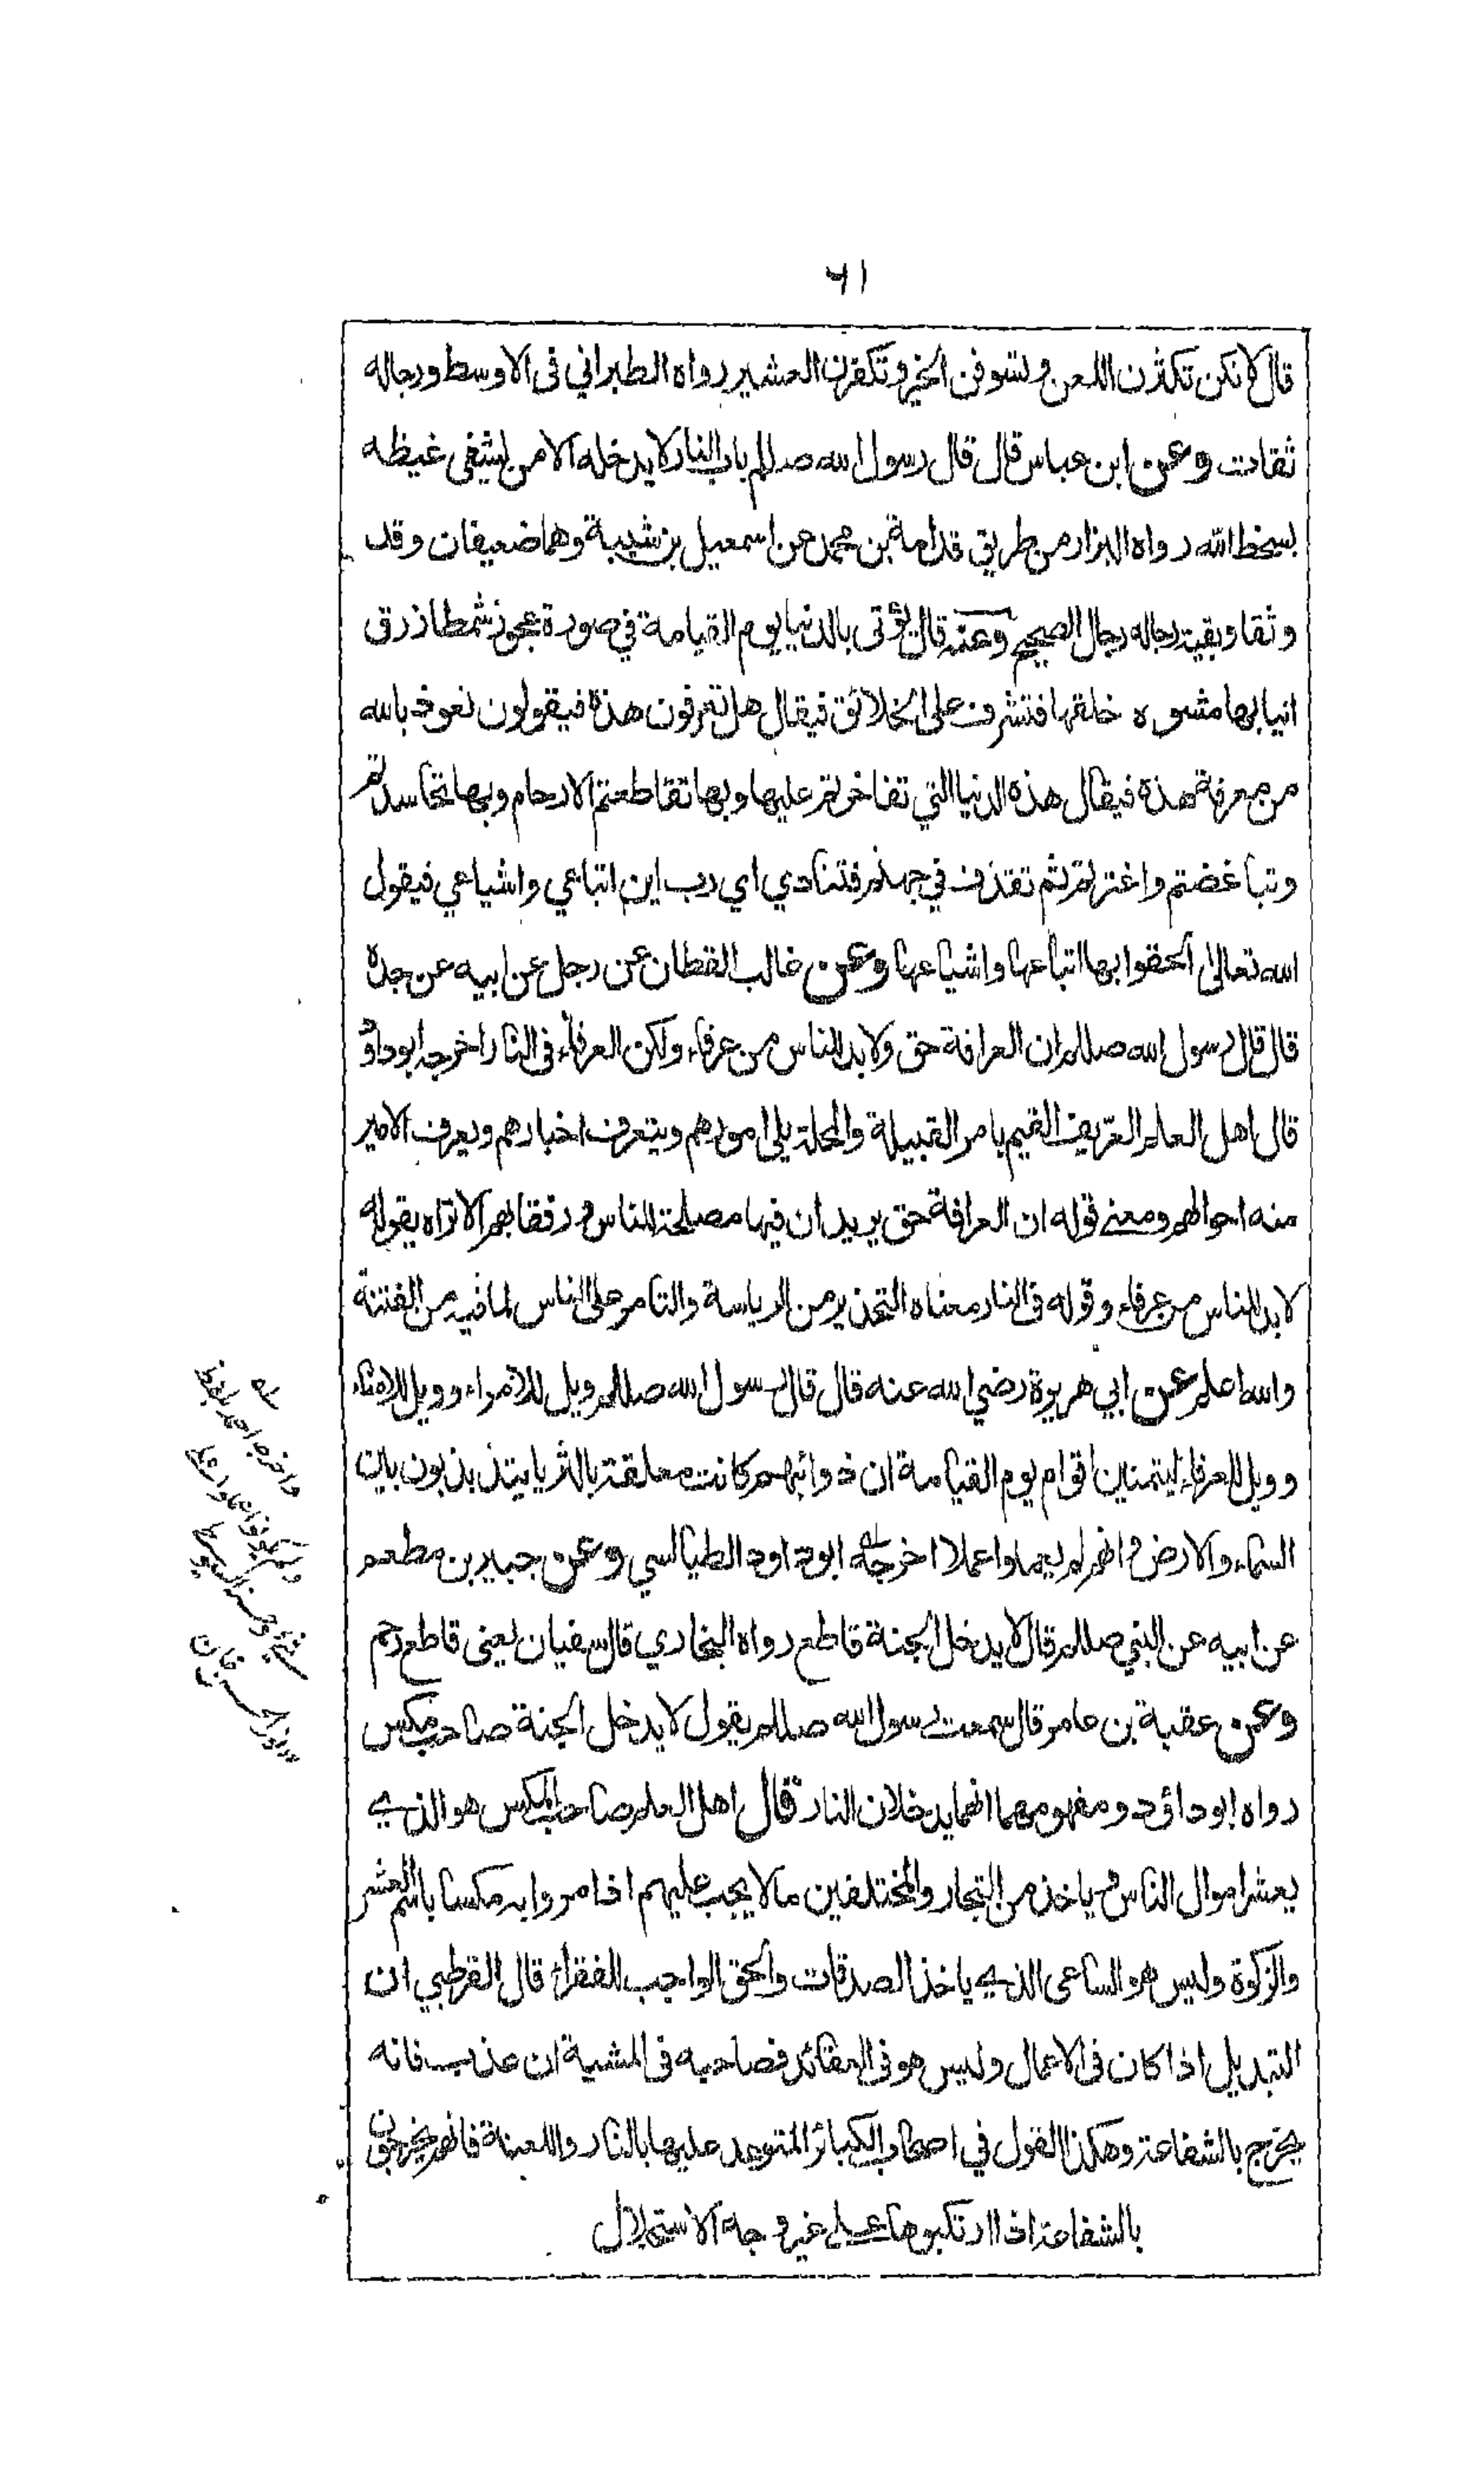 ٦١
قال لانكن تكثرن اللعن وتسوفن الخير وتكفرن العشير رواه الطبراني فى الاوسط ورجاله
ثقات وعن ابن عباس قال قال رسول الله صللم باب النار لا يدخله الا من يشفى غيظه
بسخط الله رواه البزار من طريق قدامة بن محمد عن اسمعيل بن شيبة وهما ضعيفان وقد
وثقا وبقية رجاله رجال الصحيح وعنه قال يؤتى بالدنيا يوم القيامة في صورة عجوز شمطا زرق
انيابها مشوه خلقها فتشرف على الخلائق فيقال هل تعرفون هذه فيقولون نعوذ بالله
من معرفة هذه فيقال هذه الدنيا التي تفاخرتم عليها وبها تقاطعتم الارحام وبها تحاسدتم
وتباغضتم واغتررتم ثم تقذف في جهنم فتنادي اي رب اين اتباعي واشياعي فيقول
الله تعالى الحقوا بها اتباعها واشياعها وعن غالب القطان عن رجل عن ابيه عن جده
قال قال رسول الله صللم ان العرافة حق ولا بد للناس من عرفاء ولكن العرفاء فى النار اخرجه ابو داؤد
قال اهل العلم العريف القيم بامر القبيلة والمحلة يلى امورهم ويتعرف اخبارهم ويعرف الامير
منه احوالهم ومعنى قوله ان العرافة حق يريد ان فيها مصلحة للناس ورفقا بهم الا تراه يقول
لا بد للناس من عرفاء وقوله فى النار معناه التحذير من الرياسة والتامر على الناس لما فيه من الفتنة
والله اعلم عن ابي هريرة رضي الله عنه قال قال رسول الله صللم ويل للامراء وويل للامناء
وويل للعرفاء ليتمنين اقوام يوم القيامة ان ذوائبهم كانت معلقة بالثريا يتذبذبون بين
السماء والارض وانهم لم يعملوا عملا اخرجه ابو داود الطيالسي وعن جبير بن مطعم
عن ابيه عن النبي صللم قال لا يدخل الجنة قاطع رواه البخاري قال سفيان يعنى قاطع رحم
وعن عقبة بن عامر قال سمعت رسول الله صللم يقول لا يدخل الجنة صاحب مكس
رواه ابو داؤد ومفهومهما انهما يدخلان النار قال اهل العلم صاحب المكس هو الذي
يعشر اموال الناس وياخذ من التجار والمختلفين ما لا يجب عليهم اذا مروا به مكسا باسم العشر
والزكوة وليس هو الساعى الذي ياخذ الصدقات والحق الواجب للفقراء قال القرطبي ان
التبديل اذا كان فى الاعمال وليس هو في العقائد فصاحبه فى المشية ان عذب فانه
يخرج بالشفاعة وهكذا القول في اصحاب الكبائر المتوعد عليها بالنار واللعنة فانهم يخرجون
بالشفاعة اذا ارتكبوها على غير وجه الاستحلال
واخرجه احمد بلفظ